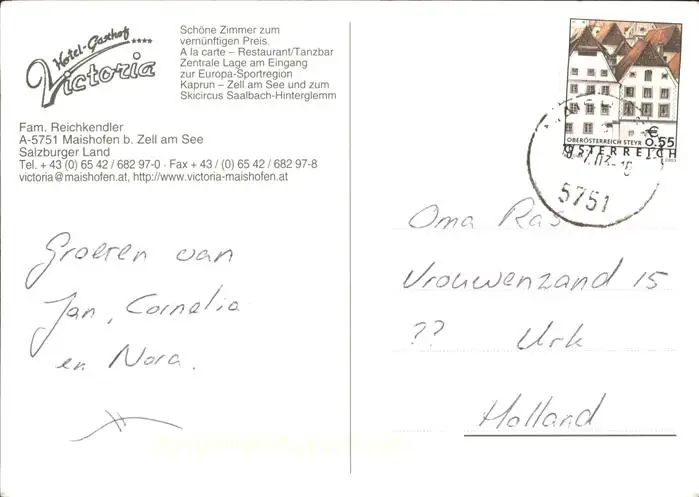 Hotel-Gasthof ****
Victoria
Schöne Zimmer zum
vernünftigen Preis.
A la carte – Restaurant/Tanzbar
Zentrale Lage am Eingang
zur Europa-Sportregion
Kaprun – Zell am See und zum
Skicircus Saalbach-Hinterglemm
Fam. Reichkendler
A-5751 Maishofen b. Zell am See
Salzburger Land
Tel. + 43 (0) 65 42 / 682 97-0 · Fax + 43 / (0) 65 42 / 682 97-8
victoria@maishofen.at, http://www.victoria-maishofen.at
Groeten van
Jan, Cornelia
en Nora.
€
0,55
OBERÖSTERREICH STEYR
ÖSTERREICH
5751
Oma Ras
Vrouwenzand 15
?? Urk
Holland